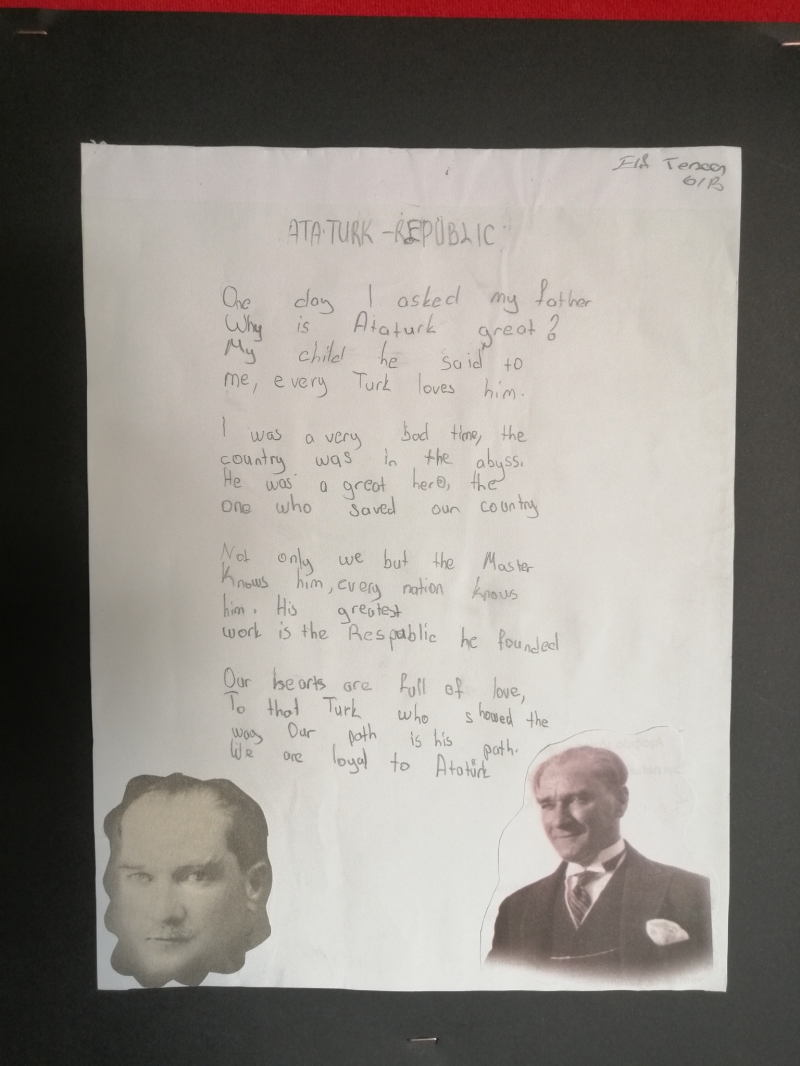 Elif
6/B
ATATURK - REPÜBLIC
One day I asked my father
Why is Ataturk great?
My child he said to
me, every Turk loves him.
I was a very bad time, the
country was in the abyss.
He was a great hero, the
one who saved our country
Not only we but the Master
Knows him, every nation knows
him. His greatest
work is the Respablic he founded
Our hearts are full of love,
To that Turk who showed the
way Our path is his path.
We are loyal to Atatürk